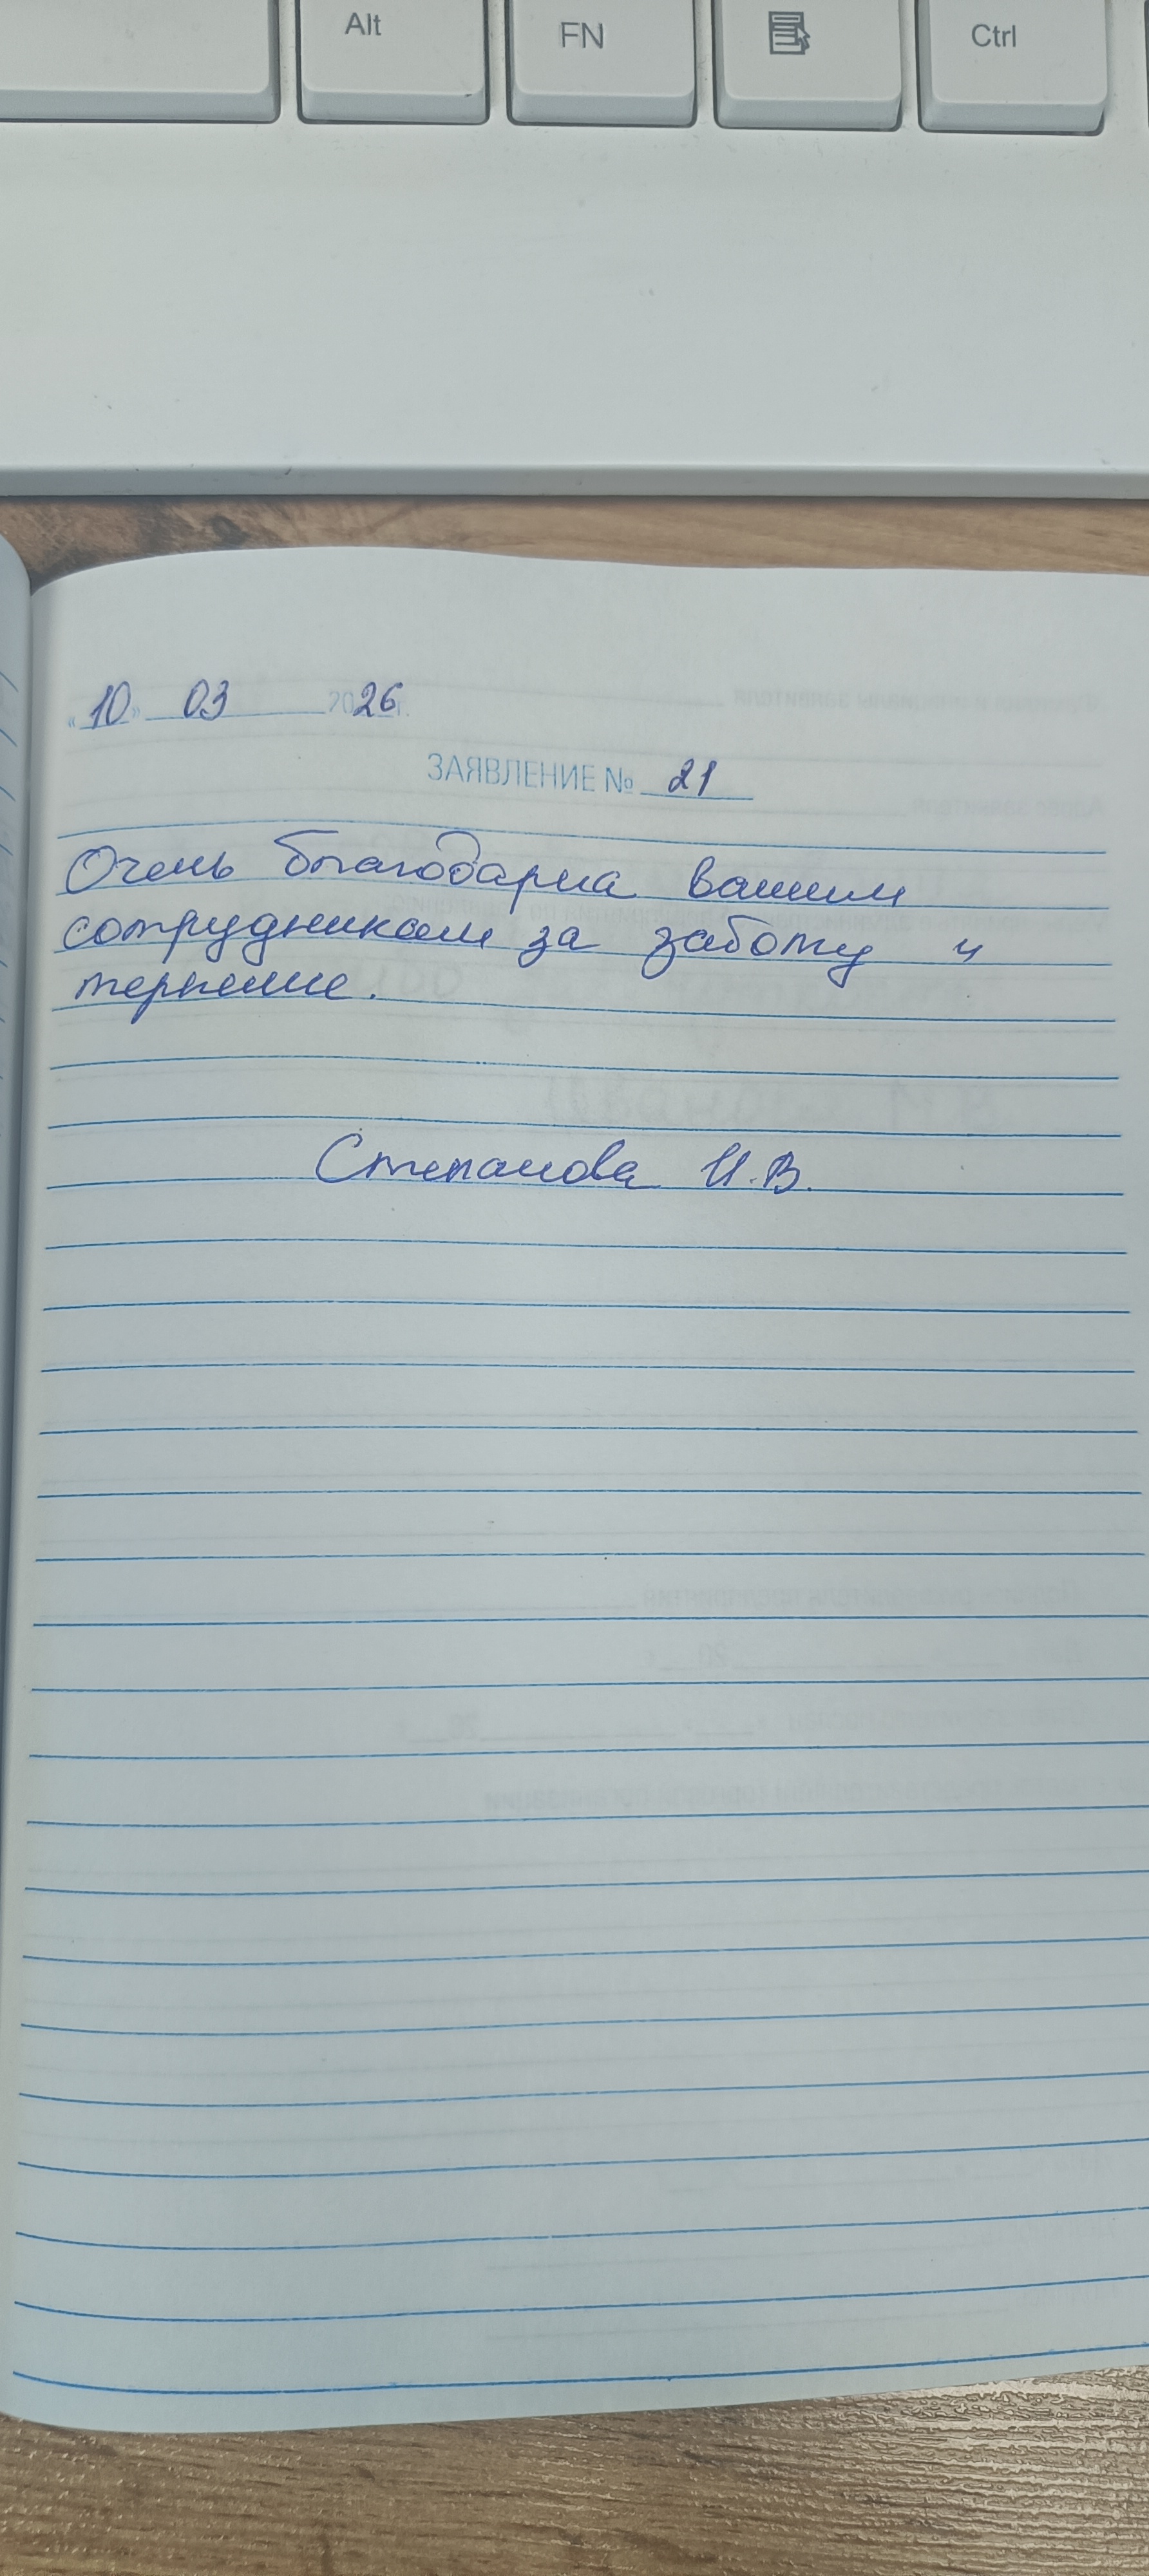 Alt FN Ctrl
«10» 03 2026г.
ЗАЯВЛЕНИЕ № 21
Очень благодарна вашим
сотрудникам за заботу и
терпение.
Степанова И.В.